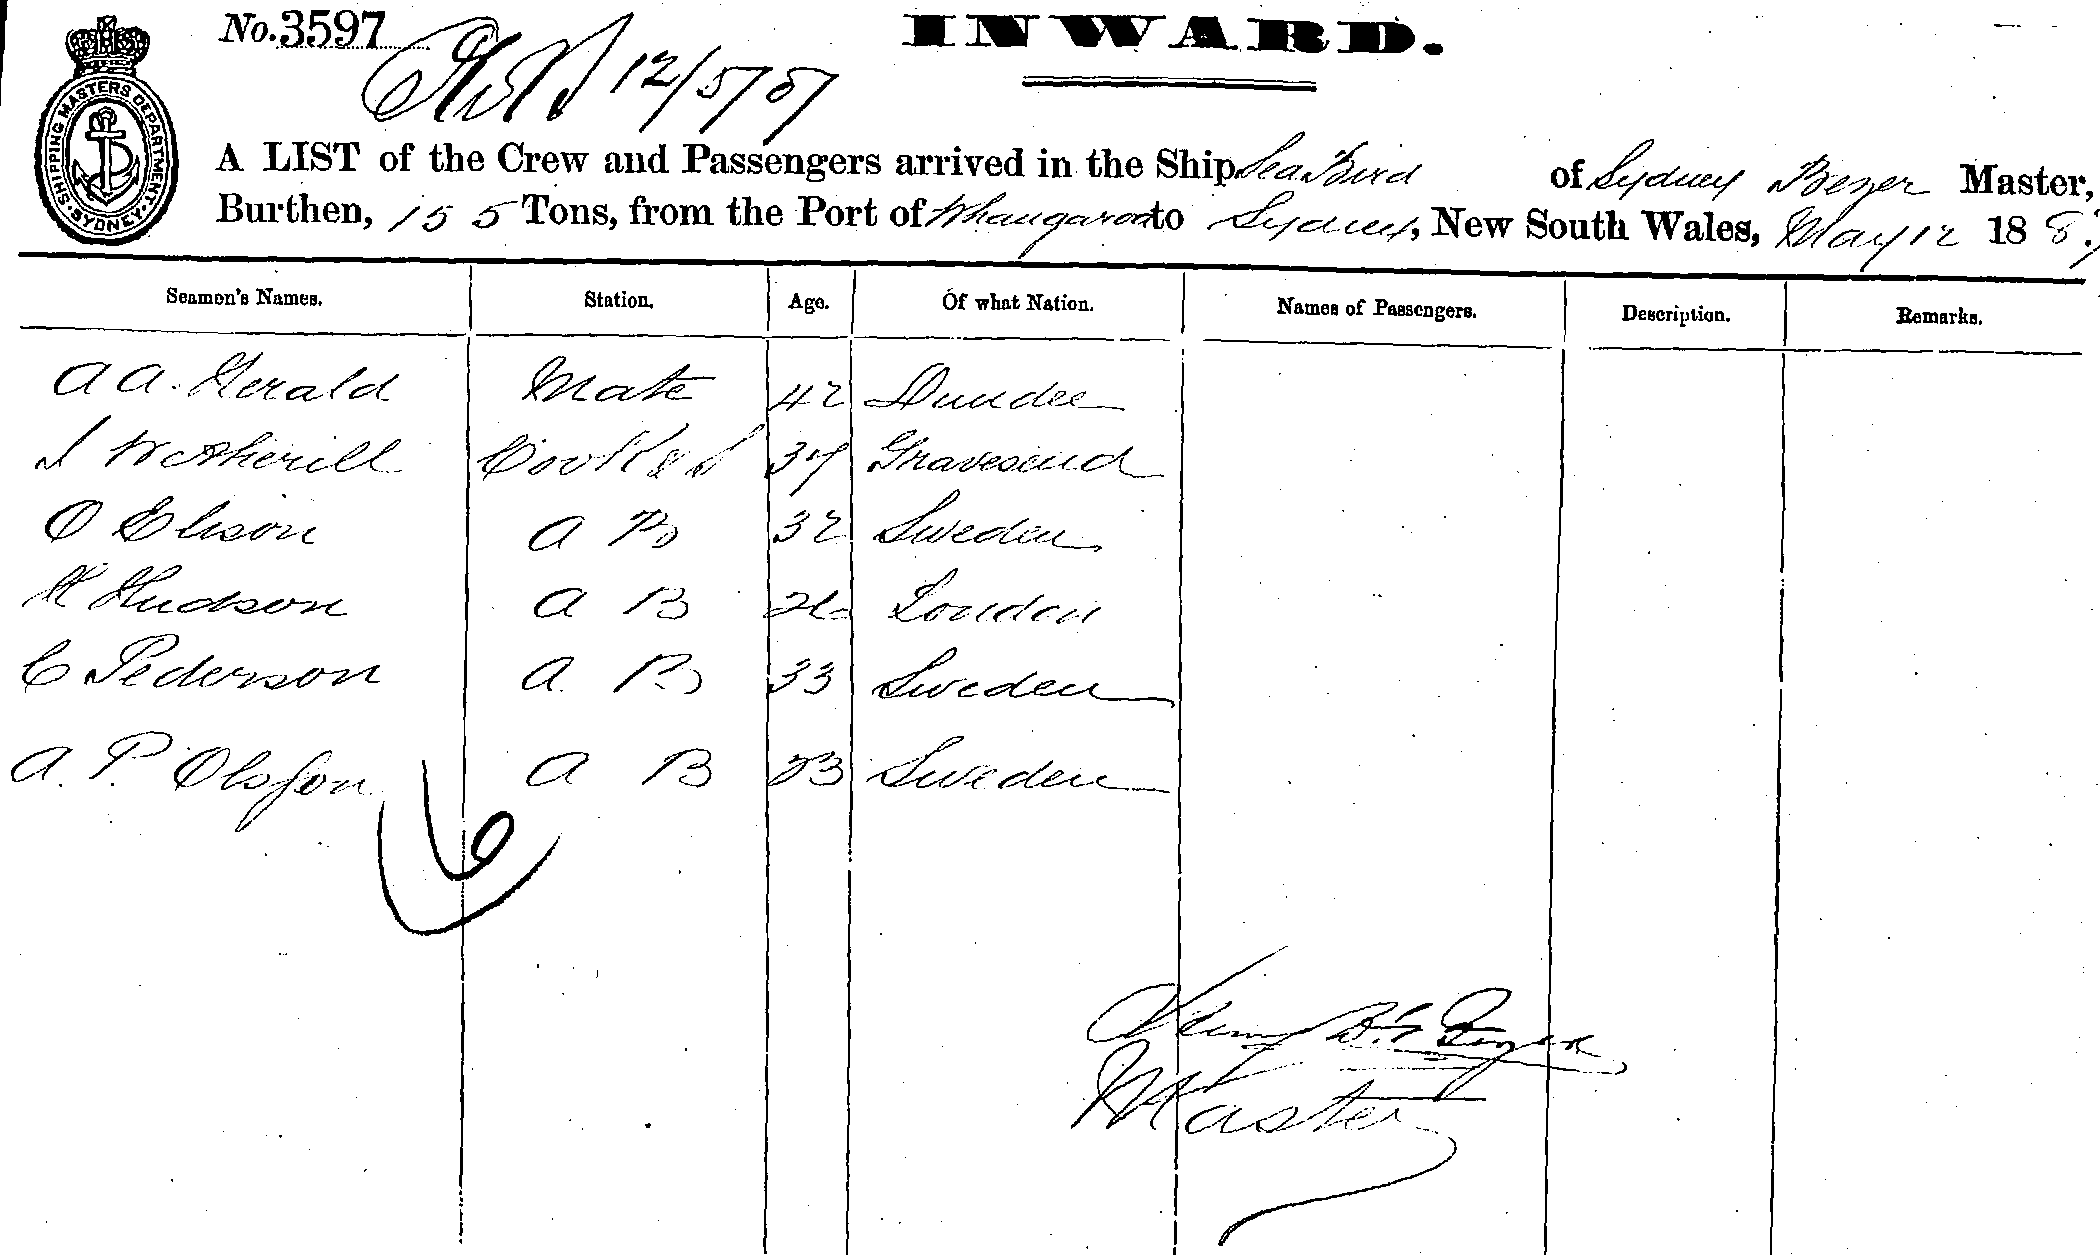 No. 3597
INWARD.
12/5/87
SHIPPING MASTERS DEPARTMENT. SYDNEY.
A LIST of the Crew and Passengers arrived in the Ship Sea Bird of Sydney Bezer Master,
Burthen, 155 Tons, from the Port of Whangaroa to Sydney, New South Wales, May 12 188.7
Seamen's Names. Station. Age. Of what Nation. Names of Passengers. Description. Remarks.
A A. Herald Mate 42 Dundee
J Wetherill Cook & S 37 Gravesend
O Elison A B 32 Sweden
H Hudson A B London
C Pederson A. B 33 Sweden
A. P. Olsson A B 23 Sweden
6
Henry Bezer
Master